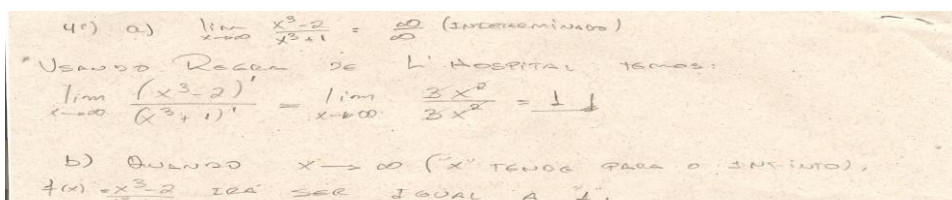 4º) a) lim x→∞ x³-2 / x³+1 = ∞/∞ (INDETERMINADO)
USANDO REGRA DE L' HOSPITAL TEMOS:
lim x→∞ (x³-2)' / (x³+1)' = lim x→∞ 3x² / 3x² = 1
b) QUANDO x → ∞ ("x" TENDE PARA O INFINTO),
f(x) = x³-2 IRÁ SER IGUAL A 1.